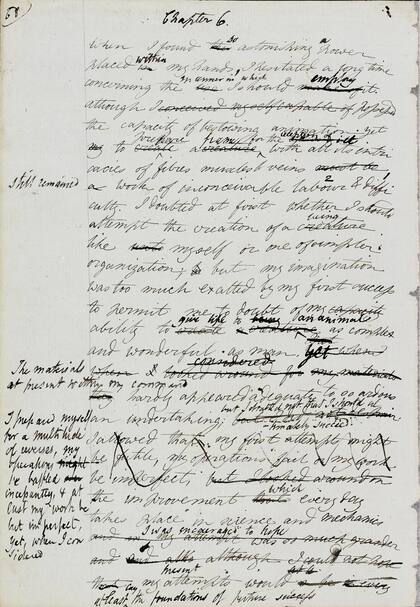 58
Chapter 6.
When I found the so astonishing a power
placed in within my hands, I hesitated a long time
concerning the manner in which I should make employ it;
although I conceived myself capable of possessed
the capacity of bestowing animation yet
to create prepare a creature frame for the reception of it with all its intri
cacies of fibres muscles & veins must be
still remained
a work of inconceivable labour & diffi
culty. I doubted at first whether I should
attempt the creation of a creature being
like myself or one of simpler
organization; but my imagination
was too much exalted by my first success
to permit me to doubt of my capacity
ability to create give life to a creature an animal as complex
and wonderful as man. yet when
when I looked around considered for my materials
The materials
at present within my command
hardly appeared adequate to so arduous
an undertaking; but I should not despair
but I doubted not that I should
I allowed that my first attempt might
be futile, my operations fail or my work
be imperfect, but I looked around on
the improvement that which every day
takes place in science and mechanics
I was encouraged to hope
although I could not hope
my present attempts would at
least lay the foundations of future success
I prepared myself
for a multitude
of reverses, my
operations might
be baffled
incessantly, & at
last my work be
but imperfect,
yet, when I con
sidered